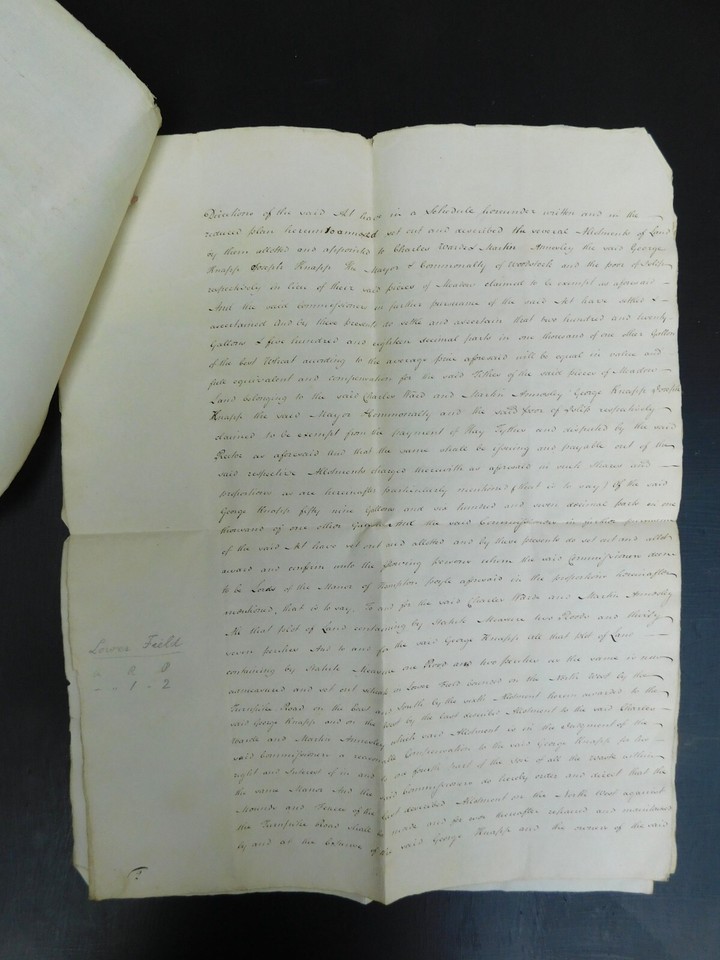 Directions of the said Act have in a Schedule hereunder written and in the
reduced plan hereunto annexed set out and described the several Allotments of Land
by them allotted and appointed to Charles Warde & Martin Annesley the said George
Knapp Joseph Knapp the Mayor & Commonalty of Woodstock and the poor of Islip
respectively in lieu of their said pieces of Meadow claimed to be exempt as aforesaid
And the said Commissioners in further pursuance of the said Act have settled &
ascertained And by these presents do settle and ascertain that two hundred and twenty
Gallons & five hundred and eighteen decimal parts in one thousand of one other Gallon
of the best Wheat according to the average price aforesaid will be equal in value and
full equivalent and compensation for the said Tithes of the said pieces of Meadow
Land belonging to the said Charles Ward and Martin Annesley George Knapp Joseph
Knapp the said Mayor & Commonalty and the said poor of Islip respectively
claimed to be exempt from the payment of Hay Tythes and disputed by the said
Rector as aforesaid And that the same shall be issuing and payable out of the
said respective Allotments charged therewith as aforesaid in such shares and
proportions as are hereafter particularly mentioned (that is to say) Of the said
George Knapp fifty nine Gallons and six hundred and seven decimal parts in one
thousand of one other Gallon And the said Commissioners in further pursuance
of the said Act have set out and allotted and by these presents do set out and allot
award and confirm unto the following persons whom the said Commissioners deem
to be Lords of the Manor of Hampton Poyle aforesaid in the proportions hereinafter
mentioned, that is to say, To and for the said Charles Warde and Martin Annesley
All that plot of Land containing by Statute Measure two Roods and thirty
seven perches And to and for the said George Knapp all that plot of Land
containing by Statute Measure one Rood and two perches as the same is now
admeasured and set out situate in Lower Field bounded on the North West by the
Turnpike Road on the East and South by the sixth Allotment herein awarded to the
said George Knapp and on the West by the last described Allotment to the said Charles
Warde and Martin Annesley which said Allotment is in the Judgment of the
said Commissioners a reasonable Compensation to the said George Knapp for his
right and Interest of in and to one fourth part of the Soil of all the waste within
the same Manor And the said Commissioners do hereby order and direct that the
Mounds and Fences of the last described Allotment on the North West against
the Turnpike Road shall be made and for ever hereafter repaired and maintained
by and at the Expence of the said George Knapp and the owners of the said
Lower Field
A R P
- - 1 - 2